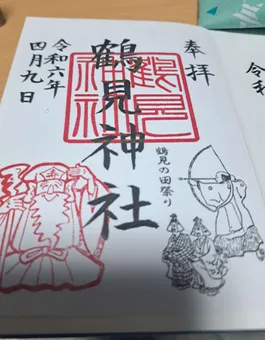 奉拝
鶴見の田祭り
鶴見神社
鶴見神社
令和六年
四月九日
令和